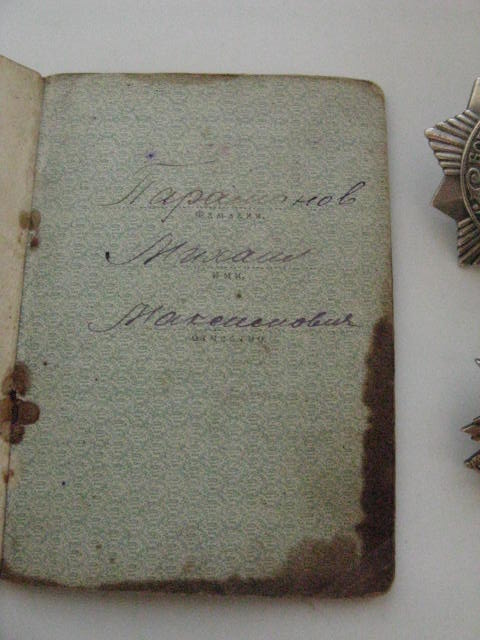 Парамонов
Фамилия.
Михаил
имя.
Максимович
отчество